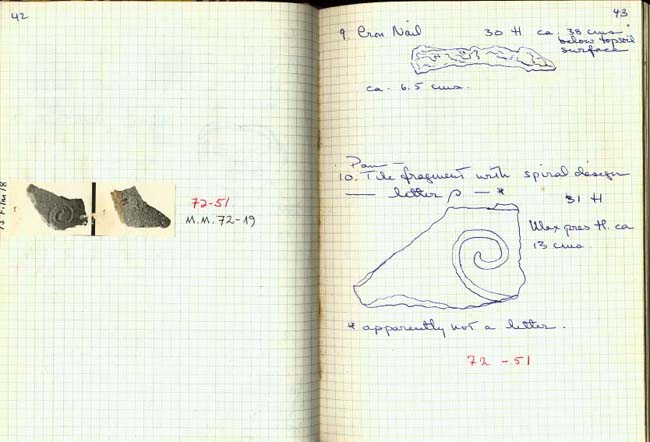 42
72-51
M.M. 72-19
43
9. Iron Nail 30 H ca. 38 cms
below topsoil
surface
ca. 6.5 cms.
Pan
10. Tile fragment with spiral design
letter ρ — *
31 H
Max pres H. ca
13 cms.
* apparently not a letter.
72-51